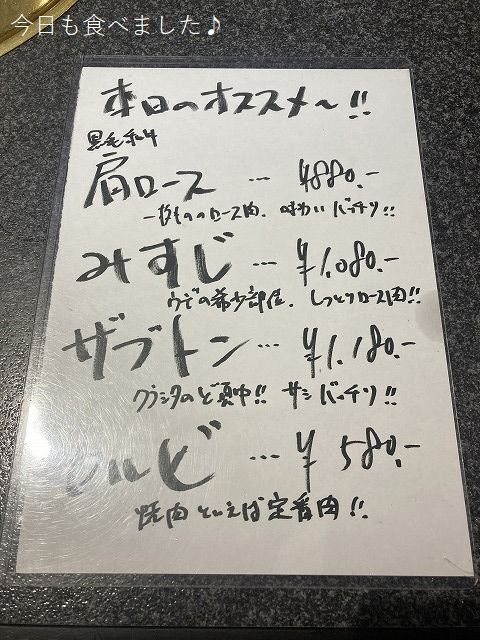 今日も食べました♪
本日のオススメ～!!
黒毛和牛
肩ロース … ¥880.-
のロース肉. 味わいバッチリ!!
みすじ … ¥1,080.-
ウデの希少部位. しっとりロース肉!!
ザブトン … ¥1,180.-
クラシタのど真中!! サシバッチリ!!
ルビ … ¥580.-
焼肉といえば定番肉!!